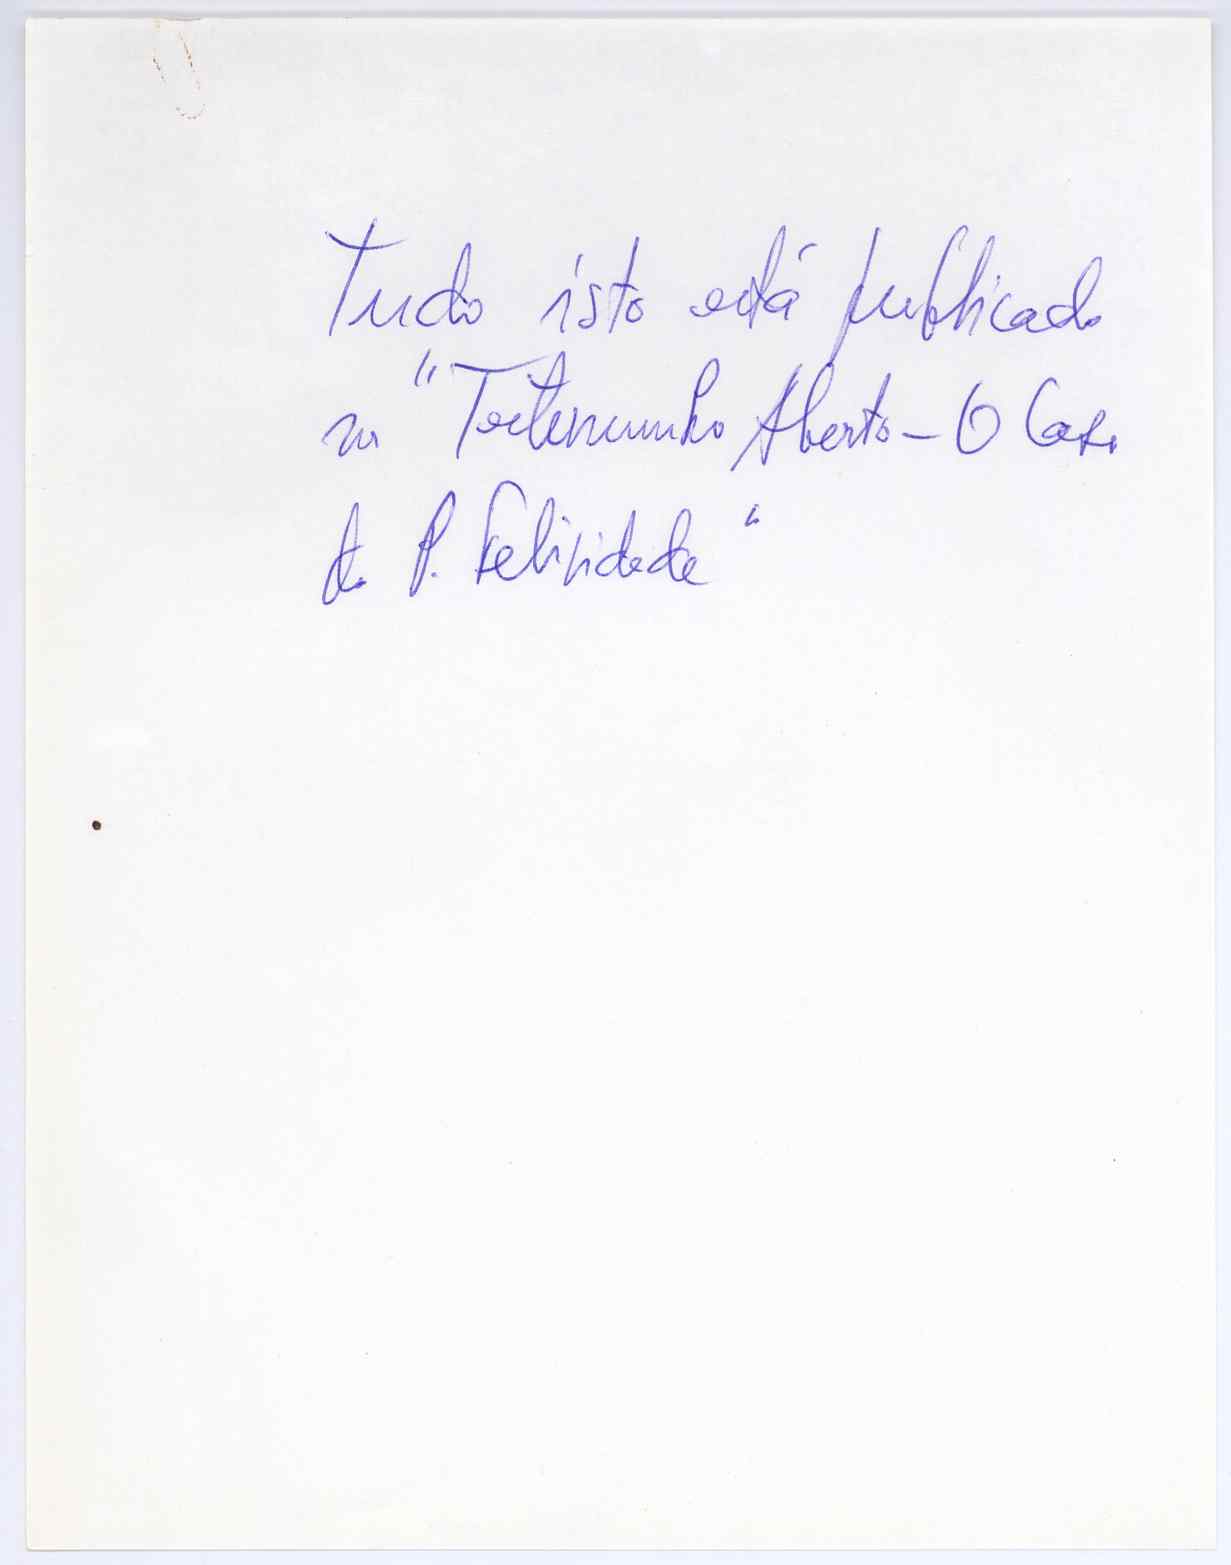 Tudo isto está publicado
no "Testemunho Aberto - O Caso
do P. Felicidade"